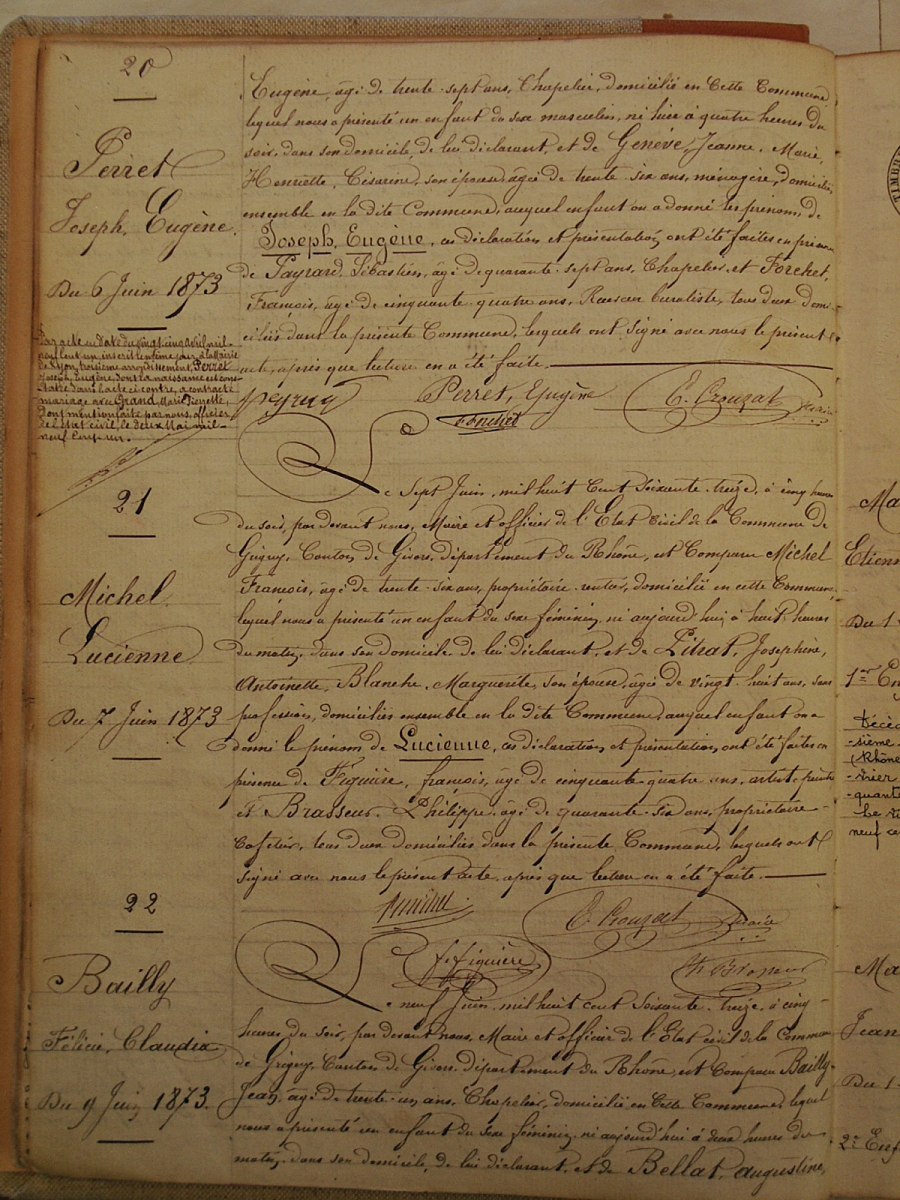 20
Perret
Joseph, Eugène.
Du 6 Juin 1873
Par acte en date du vingt cinq avril mil
neuf cent un inscrit le même jour à la Mairie
de Lyon, troisième arrondissement, Perret
Joseph, Eugène dont la naissance est cons-
tatée dans l'acte ci contre, a contracté
mariage avec Grand, Marie Pierrette,
Dont mention faite par nous, officier
de l'état civil, le deux Mai mil-
neuf cent un.
Eugène, âgé de trente-sept ans, Chapelier, domicilié en Cette Commune
lequel nous a présenté un enfant du sexe masculin, né hier à quatre heures du
soir, dans son domicile, de lui déclarant et de Genève, Jeanne, Marie,
Henriette, Césarine, son épouse, âgée de trente-six ans, ménagère, domiciliés
ensemble en la dite Commune, auquel enfant on a donné les prénoms de
Joseph, Eugène, ces déclaration et présentation ont été faites en présence
de Payrard, Sébastien, âgé de quarante-sept ans, Chapelier, et Forchet,
François, âgé de cinquante-quatre ans, buraliste, tous deux domi-
ciliés dans la présente Commune, lesquels ont signé avec nous le présent
acte, après que lecture en a été faite.
Perret, Eugène E. Crouzat Maire
forchet
21
Michel
Lucienne
Du 7 Juin 1873
Le Sept Juin, mil huit Cent Soixante-treize, à cinq heures
du soir, par devant nous, Maire et officier de l'Etat Civil de la Commune de
Grigny, Canton de Givors, département du Rhône, est Comparu Michel
François, âgé de trente-six ans, propriétaire rentier, domicilié en cette Commune,
lequel nous a présenté un enfant du sexe féminin, né aujourd'hui à huit heures
du matin, dans son domicile, de lui déclarant, et de Pitrat, Joséphine,
Antoinette, Blanche, Marguerite, son épouse, âgée de vingt-huit ans, sans
profession, domiciliés ensemble en la dite Commune, auquel enfant on a
donné le prénom de Lucienne, ces déclaration et présentation, ont été faites en
présence de Figuière, françois, âgé de cinquante-quatre ans, artiste peintre
et Brasseur, Philippe, âgé de quarante-six ans, propriétaire-
Cafetier, tous deux domiciliés dans la présente Commune, lesquels ont
signé avec nous le présent acte, après que lecture en a été faite.
Michel E. Crouzat Maire
f. figuière Ph Brasseur
22
Bailly
Félicie, Claudia
Du 9 Juin 1873.
Le neuf Juin, mil huit cent soixante-treize, à cinq-
heures du soir, par devant nous, Maire et officier de l'Etat civil de la Commune
de Grigny, Canton de Givors, département du Rhône, est Comparu Bailly-
Jean, âgé de trente-un ans, Chapelier, domicilié en Cette Commune, lequel
nous a présenté un enfant du sexe féminin, né aujourd'hui à deux heures du
matin, dans son domicile, de lui déclarant, et de Bellat, augustine,
TIMBRE
Ma
Etienn
Du 1
1er En
Décéd
-sième
(Rhône
-vrier
-quante
neuf ce
Ma
Jean
Du 1
2e Enf